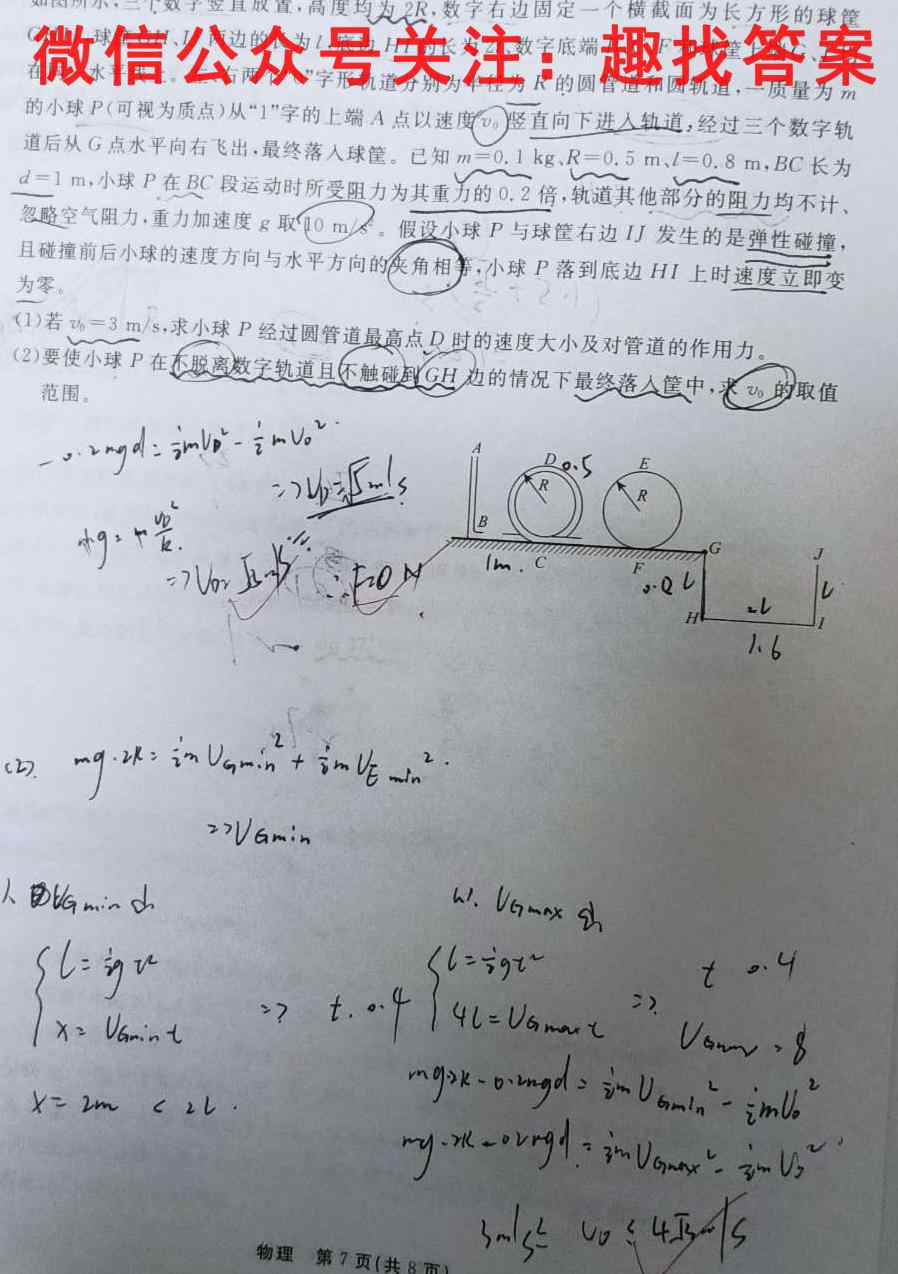 如图所示,三个数字竖直放置,高度均为2R,数字右边固定一个横截面为长方形的球筐
微信公众号关注：趣找答案
字形轨道分别为半径为R的圆管道和圆轨道,一质量为m
的小球P(可视为质点)从“1”字的上端A点以速度v₀竖直向下进入轨道,经过三个数字轨
道后从G点水平向右飞出,最终落入球筐。已知m=0.1 kg、R=0.5 m、l=0.8 m,BC长为
d=1 m,小球P在BC段运动时所受阻力为其重力的0.2倍,轨道其他部分的阻力均不计、
忽略空气阻力,重力加速度g取10 m/s²。假设小球P与球筐右边IJ发生的是弹性碰撞,
且碰撞前后小球的速度方向与水平方向的夹角相等,小球P落到底边HI上时速度立即变
为零。
(1)若v₀=3 m/s,求小球P经过圆管道最高点D时的速度大小及对管道的作用力。
(2)要使小球P在不脱离数字轨道且不触碰到GH边的情况下最终落入筐中,求v₀的取值
范围。
-0.2mgd=½mv_D²-½mv₀²
=>v_D=√5 m/s
mg=m v_D²/R
∴F=0 N
A
B
D 0.5
R
E
R
1m.
C
F
G
J
l
l
H
2l
I
1.6
(2). mg·2R=½mv_Gmin²+½mv_Emin²
=>v_Gmin
v_Gmin 时
v_Gmax 时
l=½gt²
x=v_Gmin t
=> t 0.4
l=½gt²
4l=v_Gmax t
=> t 0.4
v_Gmax=8
x=2m<2l.
mg·2R-0.2mgd=½mv_Gmin²-½mv₀²
mg·2R-0.2mgd=½mv_Gmax²-½mv₀²
3m/s≤v₀≤4√3m/s
物理 第7页(共8页)